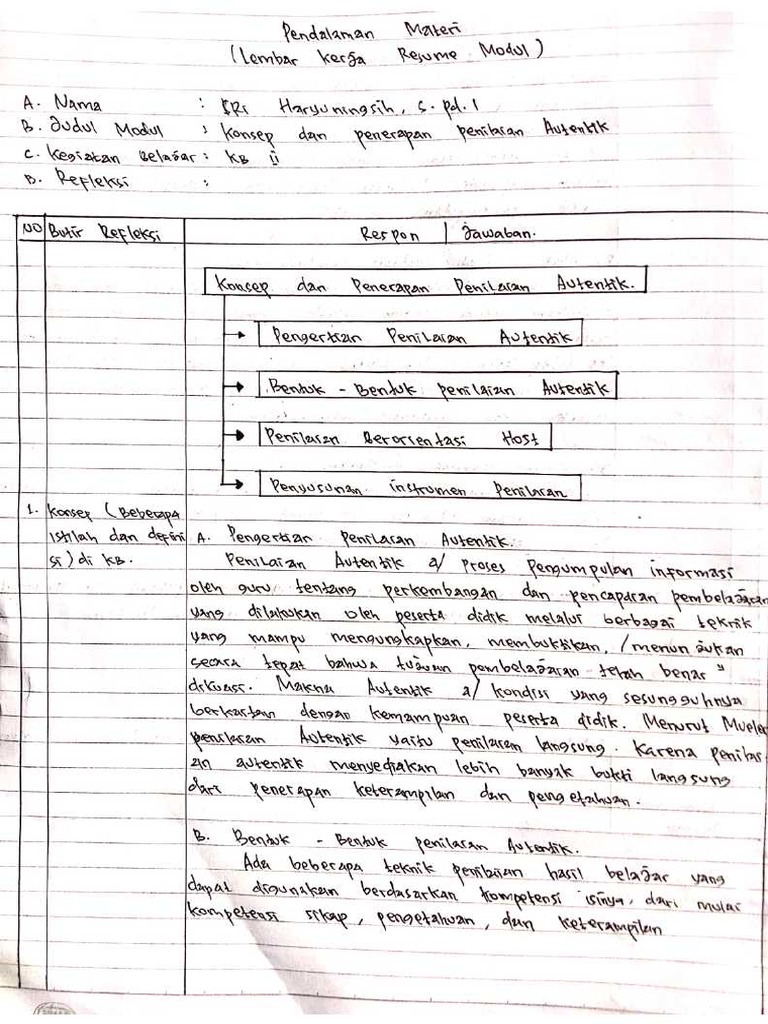 Pendalaman Materi
(Lembar Kerja Resume Modul)
A. Nama : SRi Haryuningsih, S.Pd.I
B. Judul Modul : Konsep dan penerapan penilaian Autentik
C. Kegiatan Belajar : KB II
D. Refleksi :
NO Butir Refleksi Respon / Jawaban.
Konsep dan Penerapan Penilaian Autentik.
Pengertian Penilaian Autentik
Bentuk - Bentuk penilaian Autentik
Penilaian Berorientasi Host
Penyusunan instrumen Penilaian
1. Konsep (Beberapa
istilah dan defini
si) di KB.
A. Pengertian penilaian Autentik.
Penilaian Autentik a/ proses pengumpulan informasi
oleh guru tentang perkembangan dan pencapaian pembelajaran
yang dilakukan oleh peserta didik melalui berbagai teknik
yang mampu mengungkapkan, membuktikan, /menunjukan
secara tepat bahwa tujuan pembelajaran telah benar"
dikuasi. Makna Autentik a/ kondisi yang sesungguhnya
berkaitan dengan kemampuan peserta didik. Menurut Mueler
penilaian Autentik yaitu penilaian langsung. Karena penilai
an autentik menyediakan lebih banyak bukti langsung
dari penerapan keterampilan dan pengetahuan.
B. Bentuk - Bentuk penilaian Autentik.
Ada beberapa teknik penilaian hasil belajar yang
dapat digunakan berdasarkan kompetensi isinya, dari mulai
kompetensi sikap, pengetahuan, dan keterampilan